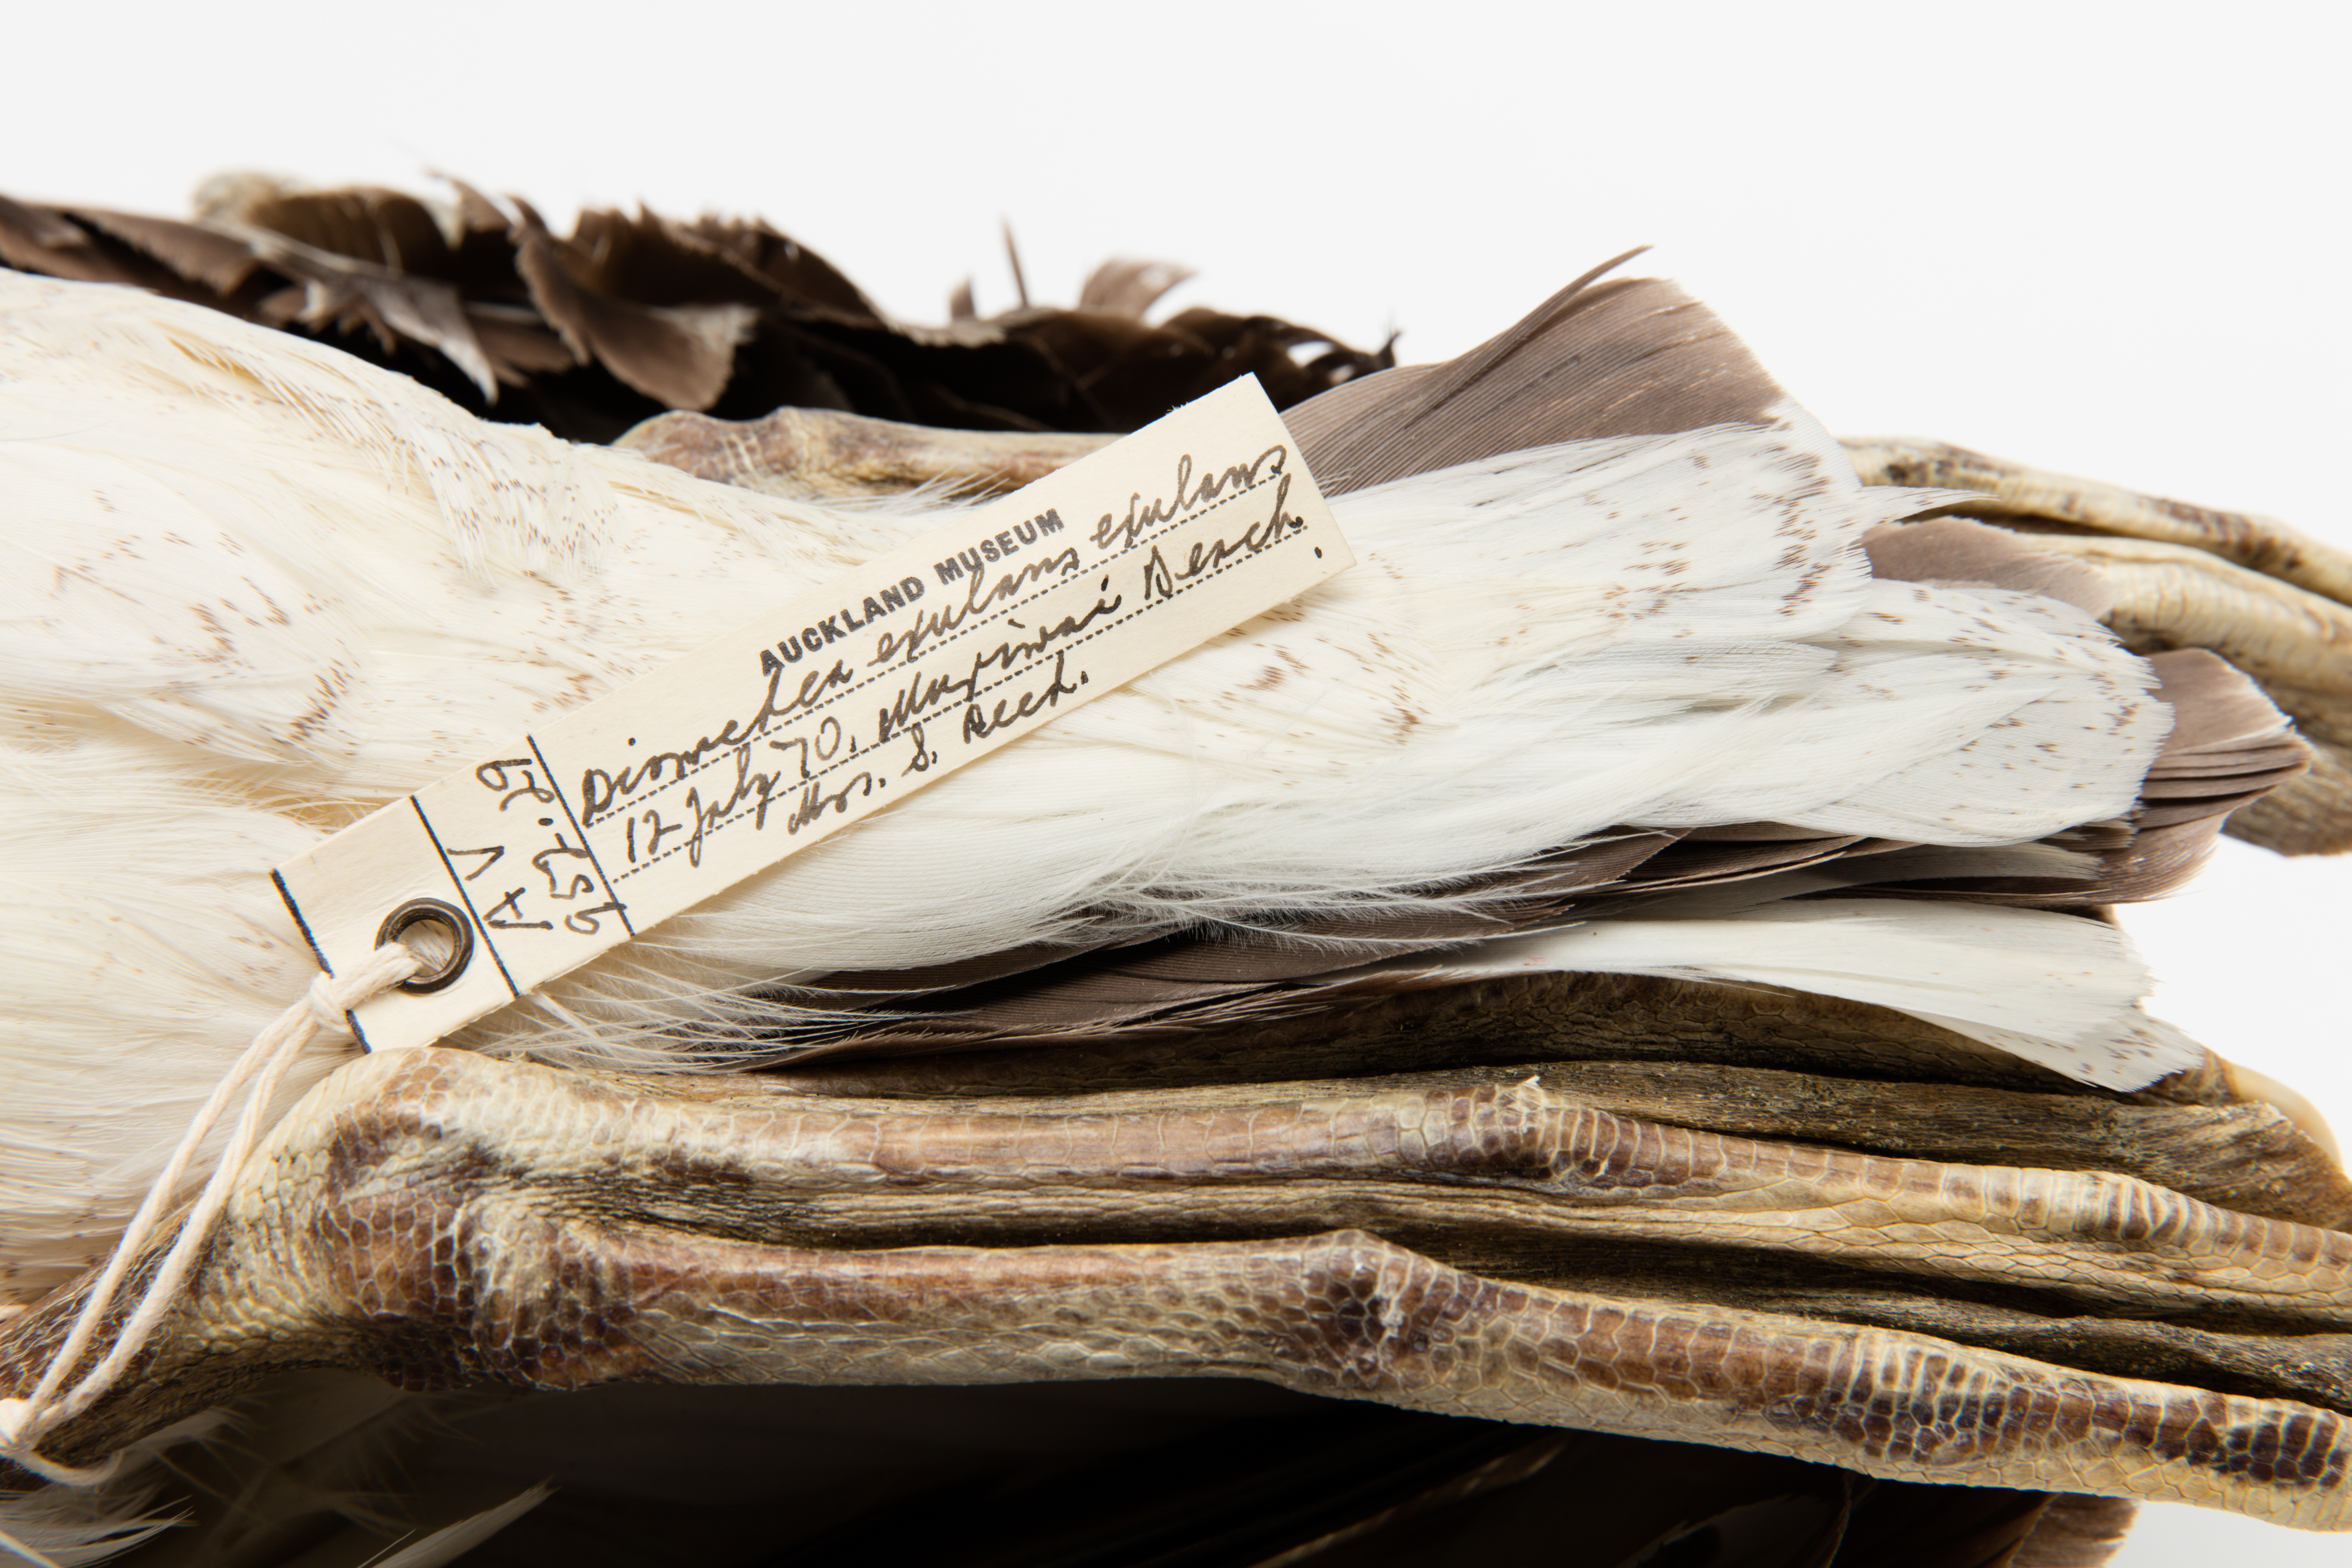 AUCKLAND MUSEUM
Diomedea exulans exulans
12 July 70. Muriwai Beach.
Mrs. S. Reed.
AV